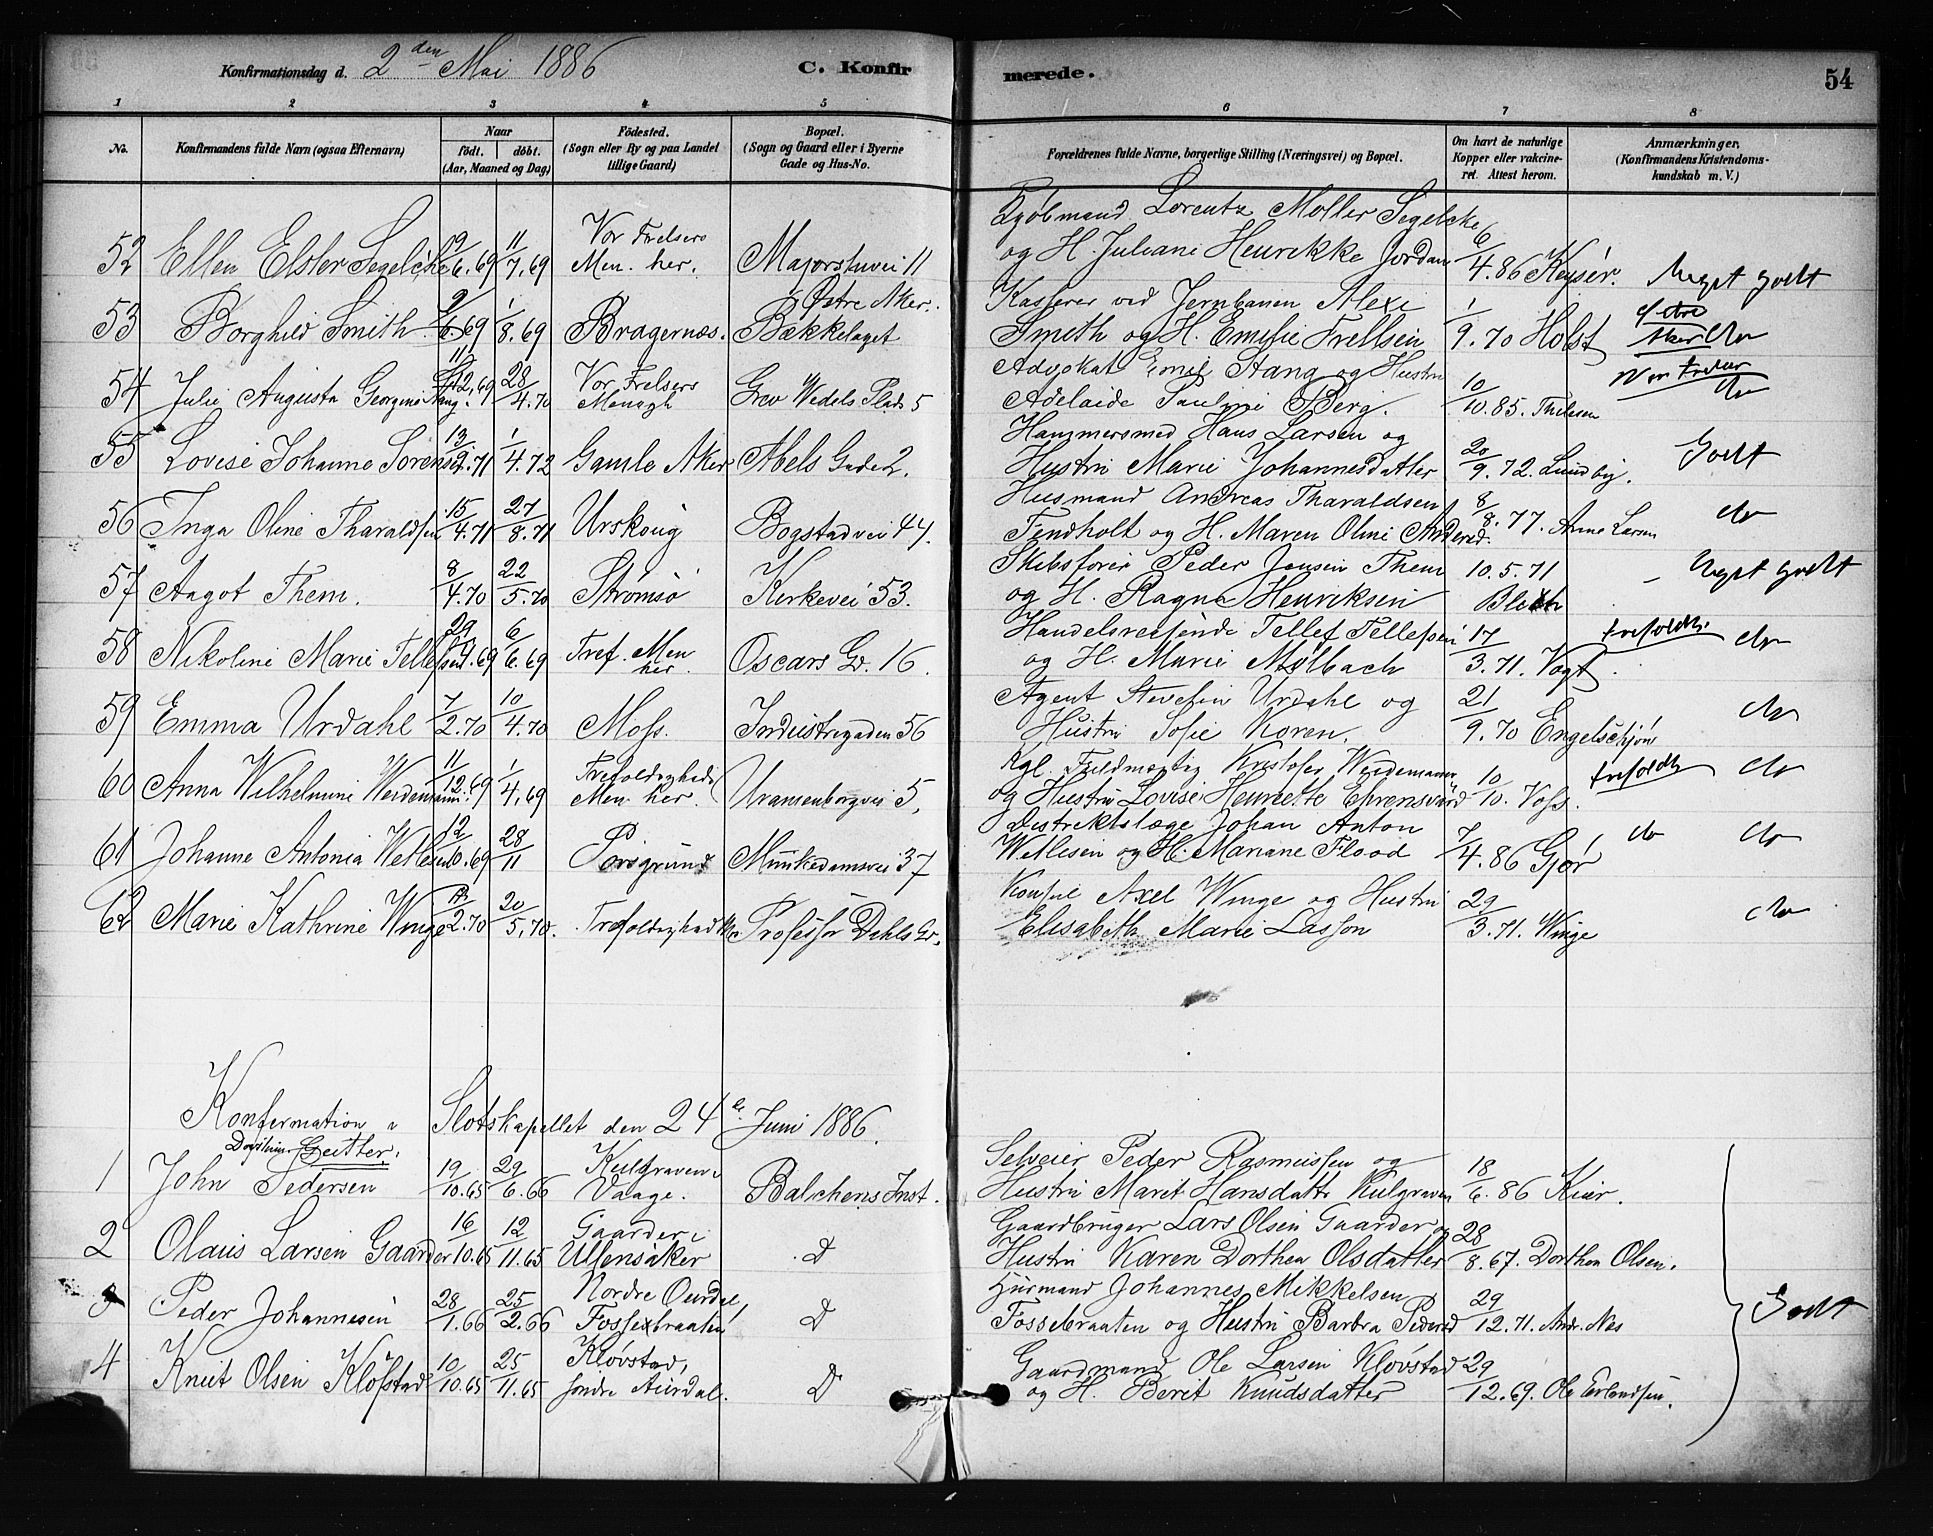 Konfirmationsdag d. 2den Mai 1886
C. Konfirmerede.
54
1 2 3 4 5 6 7 8
No.
Konfirmandens fulde Navn (ogsaa Efternavn)
Naar
födt. döbt.
(Aar, Maaned og Dag)
Födested.
(Sogn eller By og paa Landet
tillige Gaard)
Bopæl.
(Sogn og Gaard eller i Byerne
Gade og Hus-No.
Forældrenes fulde Navne, borgerlige Stilling (Næringsvei) og Bopæl.
Om havt de naturlige
Kopper eller vakcine-
ret. Attest herom.
Anmærkninger,
(Konfirmandens Kristendoms-
kundskab m. V.)
Kjöbmand Lorentz Möller Segelcke
52 Ellen Elster Segelcke 6.69 11/7.69 Vor Frelsers Men. her. Majorstuvei 11 og H. Juliane Henrikke Jordan 6/4.86 Keyser. Meget godt
Østre Aker. Kasserer ved Jernbanen Alexi
53 Borghild Smith 6.69 1/8.69 Bragernæs. Bækkelaget Smith og H. Emilie Trellsen 1/9.70 Holst Østre Aker do
Advokat Emil Stang og Hustru
54 Julie Augusta Georgine Stang. 11/12.69 28/4.70 Vor Frelsers Menigh Grev Wedels Plads 5 Adelaide Pauline Berg. 10/10.85. Thilesen Vor Frelser do
Hammersmed Hans Larsen og
55 Lovise Johanne Sorensen 13/2.71 1/4.72 Gamle Aker Abels Gade 2. Hustru Marie Johannesdatter 20/9.72. Lundby. Godt
Husmand Andreas Tharaldsen
56 Inga Oline Tharaldsen 15/4.71 27/8.71 Urskoug Bogstadvei 44. Tindholt og H. Maren Oline Andersd. 8/8.77. Anne Larsen do
Skibsfører Peder Jensen Them
57 Aagot Them. 8/4.70 22/5.70 Strømsö Kirkevei 53. og H. Ragna Henriksen 10.5.71 Meget godt
Handelsreisende Tellef Tellefsen
58 Nikoline Marie Tellefsen 29/.69 6/6.69 Tref. Men her. Oscars Gd. 16. og H. Marie Mølbach 17/3.71. Vogt. trefoldh. do
Agent Urdahl og
59 Emma Urdahl 7/2.70 10/4.70 Moss. Industrigaden 56 Hustru Sofie Koren. 21/9.70 Engelschjøn do
Kgl. Fuldmægtig Kristofer Weidemann
60 Anna Wilhelmine Weidemann. 11/12.69 1/4.69 Trefoldigheds Men. her. Uranienborgvei 5, og Hustru Lovise Henriette Ehrensvärd 10/10. Voss. trefoldh do
Distriktslæge Johan Anton
61 Johanne Antonia Wetlesen 12/10.69 28/11 Porsgrund Munkedamsvei 37 Wetlesen og H. Mariane Flood 7/4.86 Gjør do do
Konsul Axel Winge og Hustru
62 Marie Kathrine Winge 2.70 20/5.70. Trefoldighed Professor Dahls Gd. Elisabeth Marie Lasson 29/3.71. Winge do
Konfirmation i Slotskapellet den 24de Juni 1886.
Selveier Peder Rasmussen og
1 John Pedersen 19/10.65 29/6.66 Kulgraven i Vaage. Balchens Inst. Hustru Marit Hansdatt. Kulgraven 18/6.86 Kiær.
Gaardbruger Lars Olsen Gaarder og
2 Olaus Larsen Gaarder 16/10.65 12/11.65 Gaarder i Ullensaker D Hustru Karen Dorthea Olsdatter 28/8.67. Dorthea Olsen.
Husmand Johannes Mikkelsen
3 Peder Johannesen 28/1.66 25/2.66 Nordre Ourdal, Fossebraaten D Fossebraaten og Hustru Barbra Pedersd 29/12.71. Andr. Nes Godt
Gaardmand Ole Larsen Klövstad
4 Knut Olsen Klöfstad 10/10.65 25/11.65 Klövstad, Søndre Aurdal. D og H. Berit Knudsdatter 29/12.69. Ole Erlandsen.